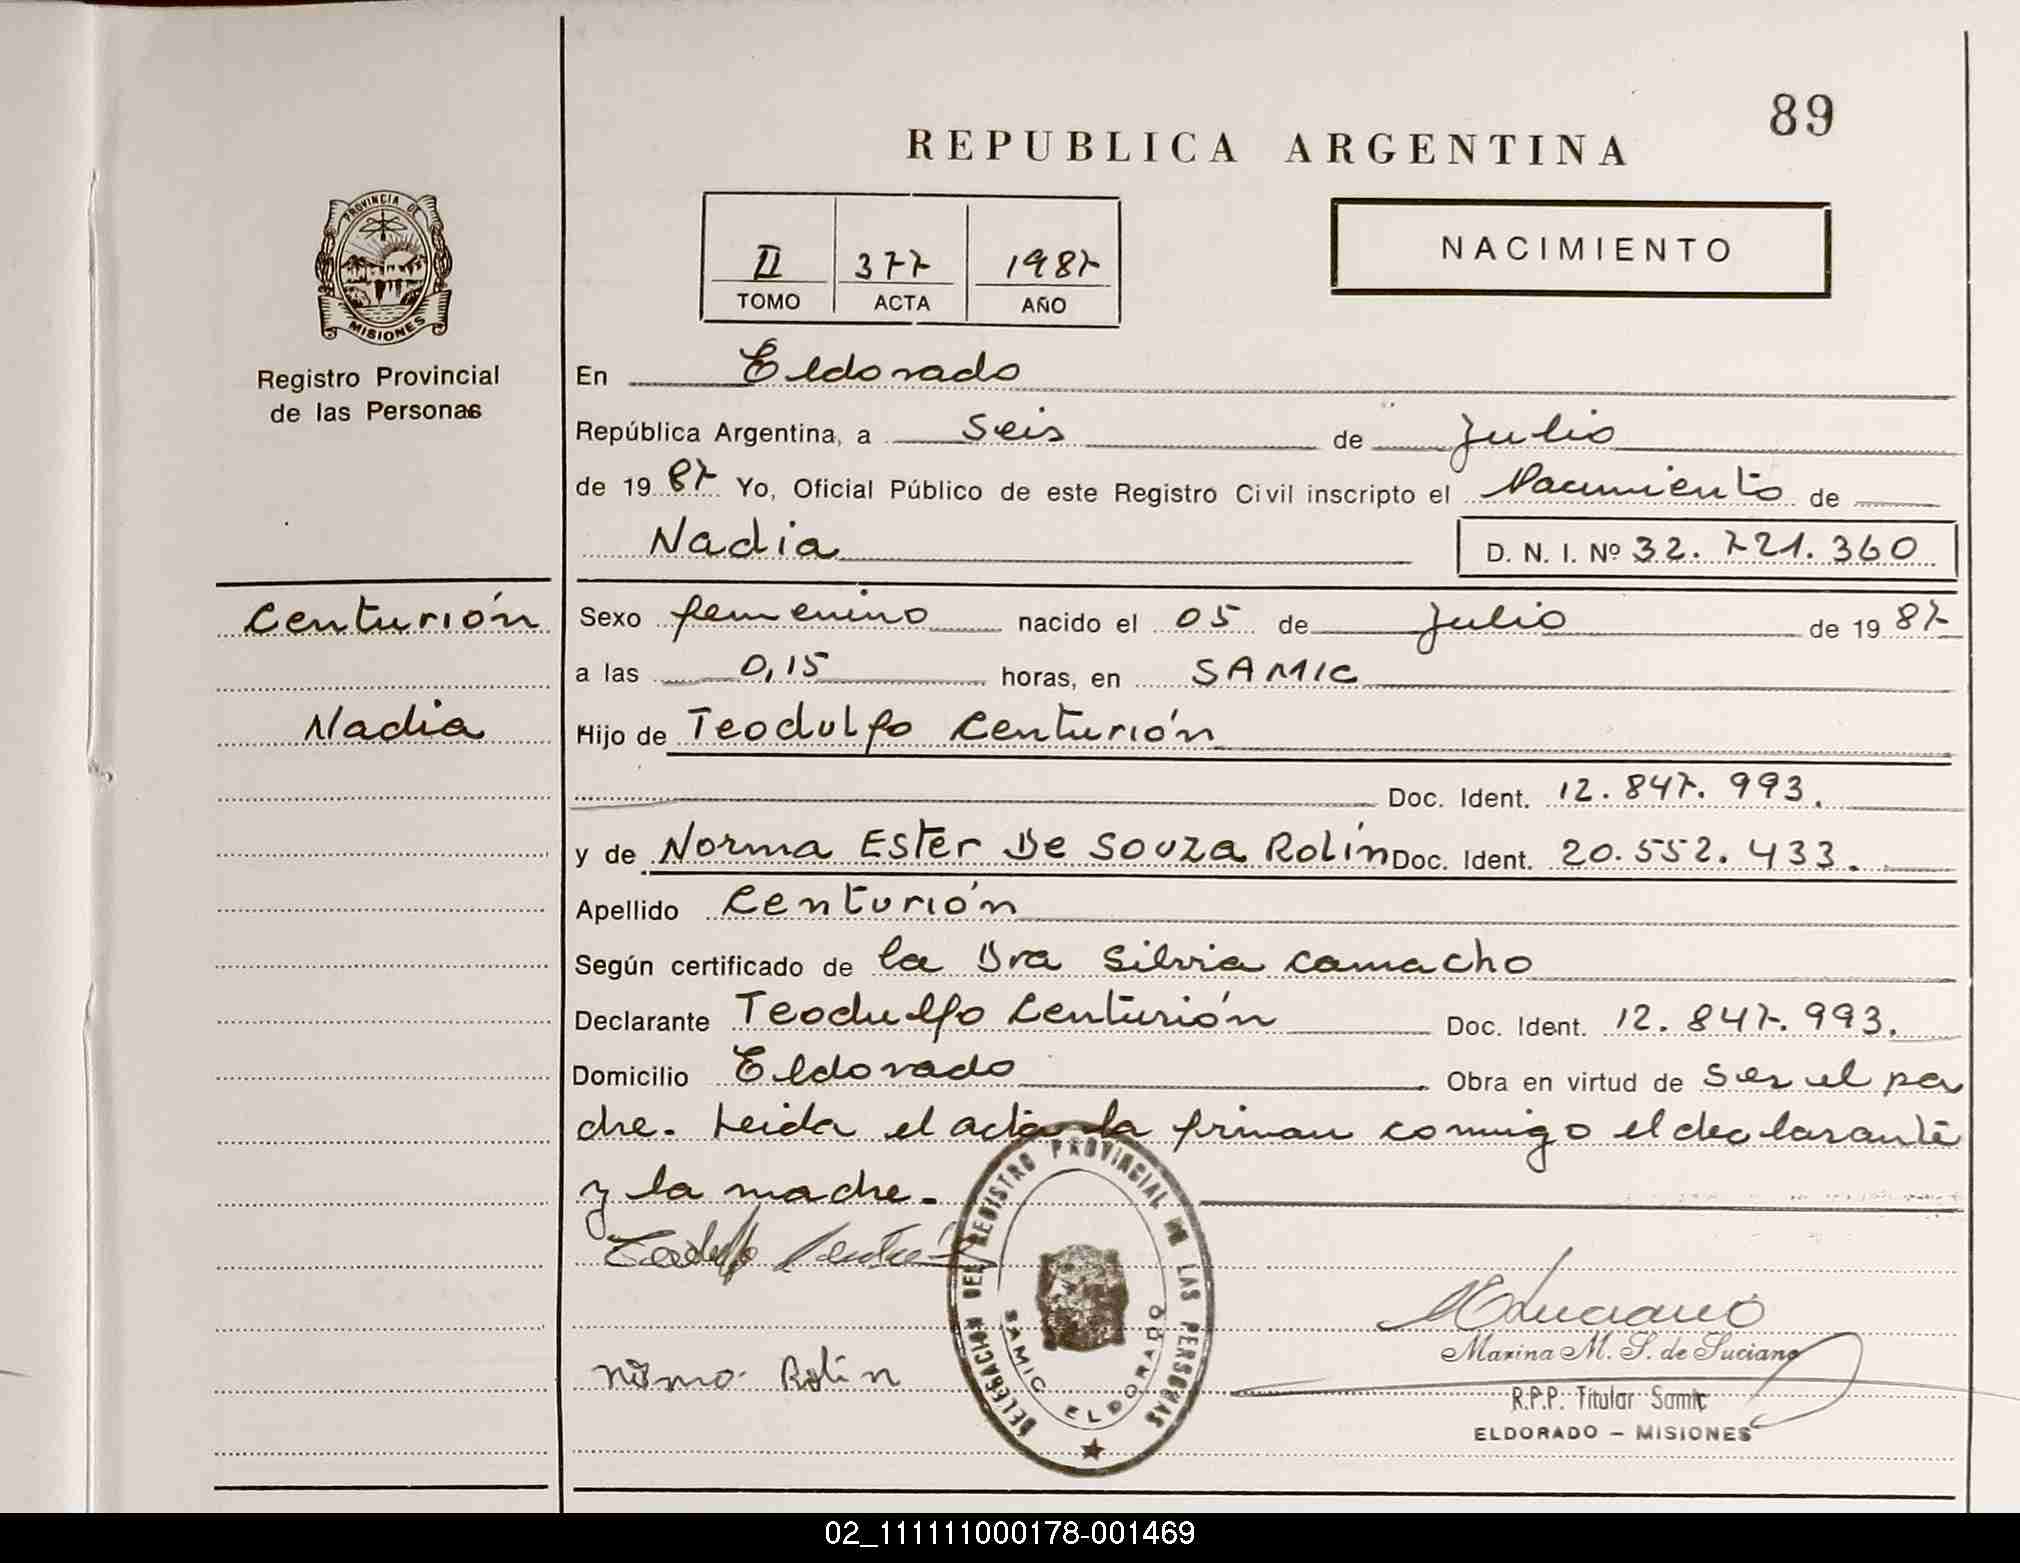 89
REPUBLICA ARGENTINA
PROVINCIA DE
MISIONES
Registro Provincial
de las Personas
II 377 1987
TOMO ACTA AÑO
NACIMIENTO
En Eldorado
República Argentina, a seis de Julio
de 1987 Yo, Oficial Público de este Registro Civil inscripto el Nacimiento de
Nadia D. N. I. Nº 32.721.360
Centurión
Nadia
Sexo femenino nacido el 05 de Julio de 1987
a las 0,15 horas, en SAMIC
Hijo de Teodulfo Centurión
Doc. Ident. 12.847.993.
y de Norma Ester De Souza Rolín Doc. Ident. 20.552.433.
Apellido Centurión
Según certificado de la Dra Silvia Camacho
Declarante Teodulfo Centurión Doc. Ident. 12.847.993.
Domicilio Eldorado Obra en virtud de ser el pa
dre. Leida el acta la firman conmigo el declarante
y la madre.
Teodulfo Centurión
Norma Rolín
DELEGACION DEL REGISTRO PROVINCIAL DE LAS PERSONAS
SAMIC ELDORADO
Marina M. S. de Luciano
R.P.P. Titular Samic
ELDORADO - MISIONES
02_111111000178-001469